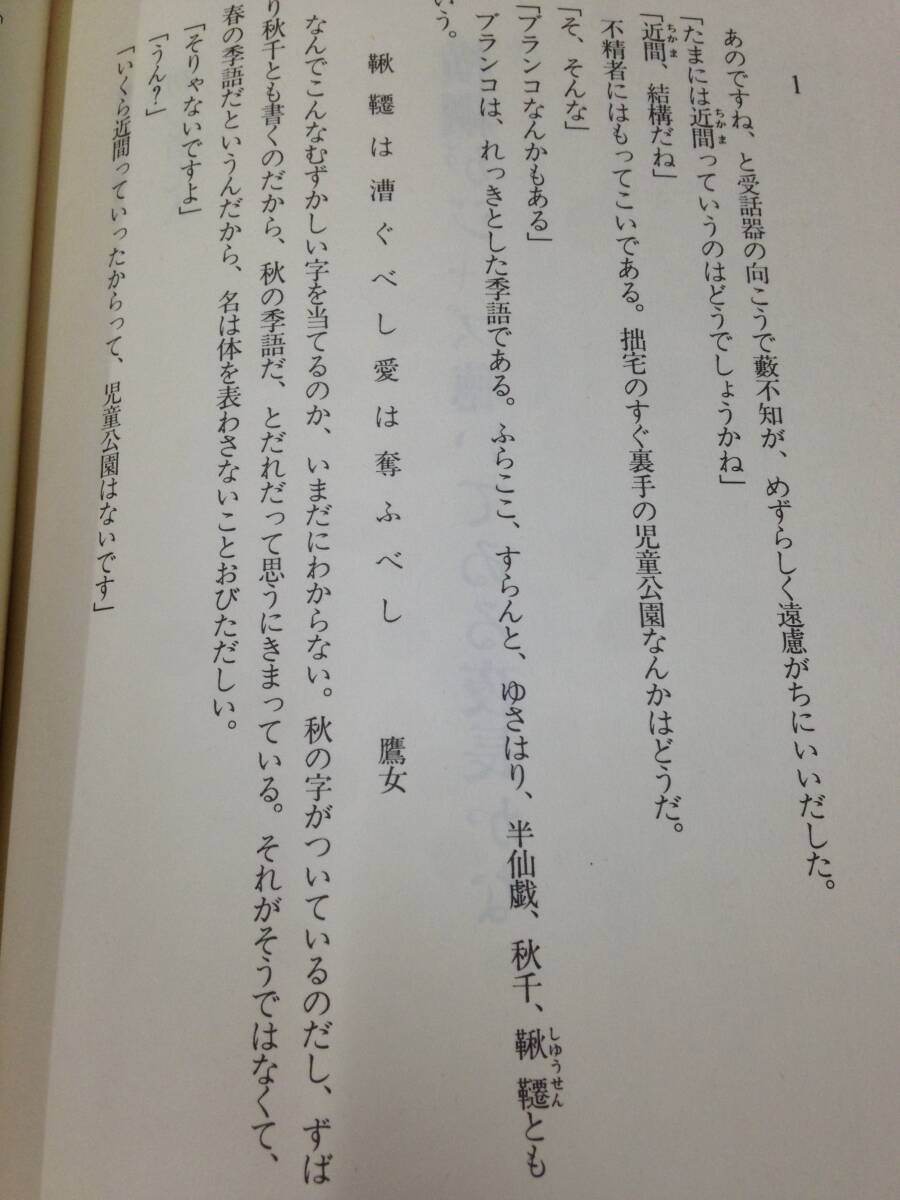 1
あのですね、と受話器の向こうで藪不知が、めずらしく遠慮がちにいいだした。
「たまには近間っていうのはどうでしょうかね」
ちかま
「近間、結構だね」
ちかま
不精者にはもってこいである。拙宅のすぐ裏手の児童公園なんかはどうだ。
「そ、そんな」
「ブランコなんかもある」
ブランコは、れっきとした季語である。ふらここ、すらんと、ゆさはり、半仙戯、秋千、鞦韆とも
しゆうせん
いう。
鞦韆は漕ぐべし愛は奪ふべし 鷹女
なんでこんなむずかしい字を当てるのか、いまだにわからない。秋の字がついているのだし、ずば
り秋千とも書くのだから、秋の季語だ、とだれだって思うにきまっている。それがそうではなくて、
春の季語だというんだから、名は体を表わさないことおびただしい。
「そりゃないですよ」
「うん?」
「いくら近間っていったからって、児童公園はないです」